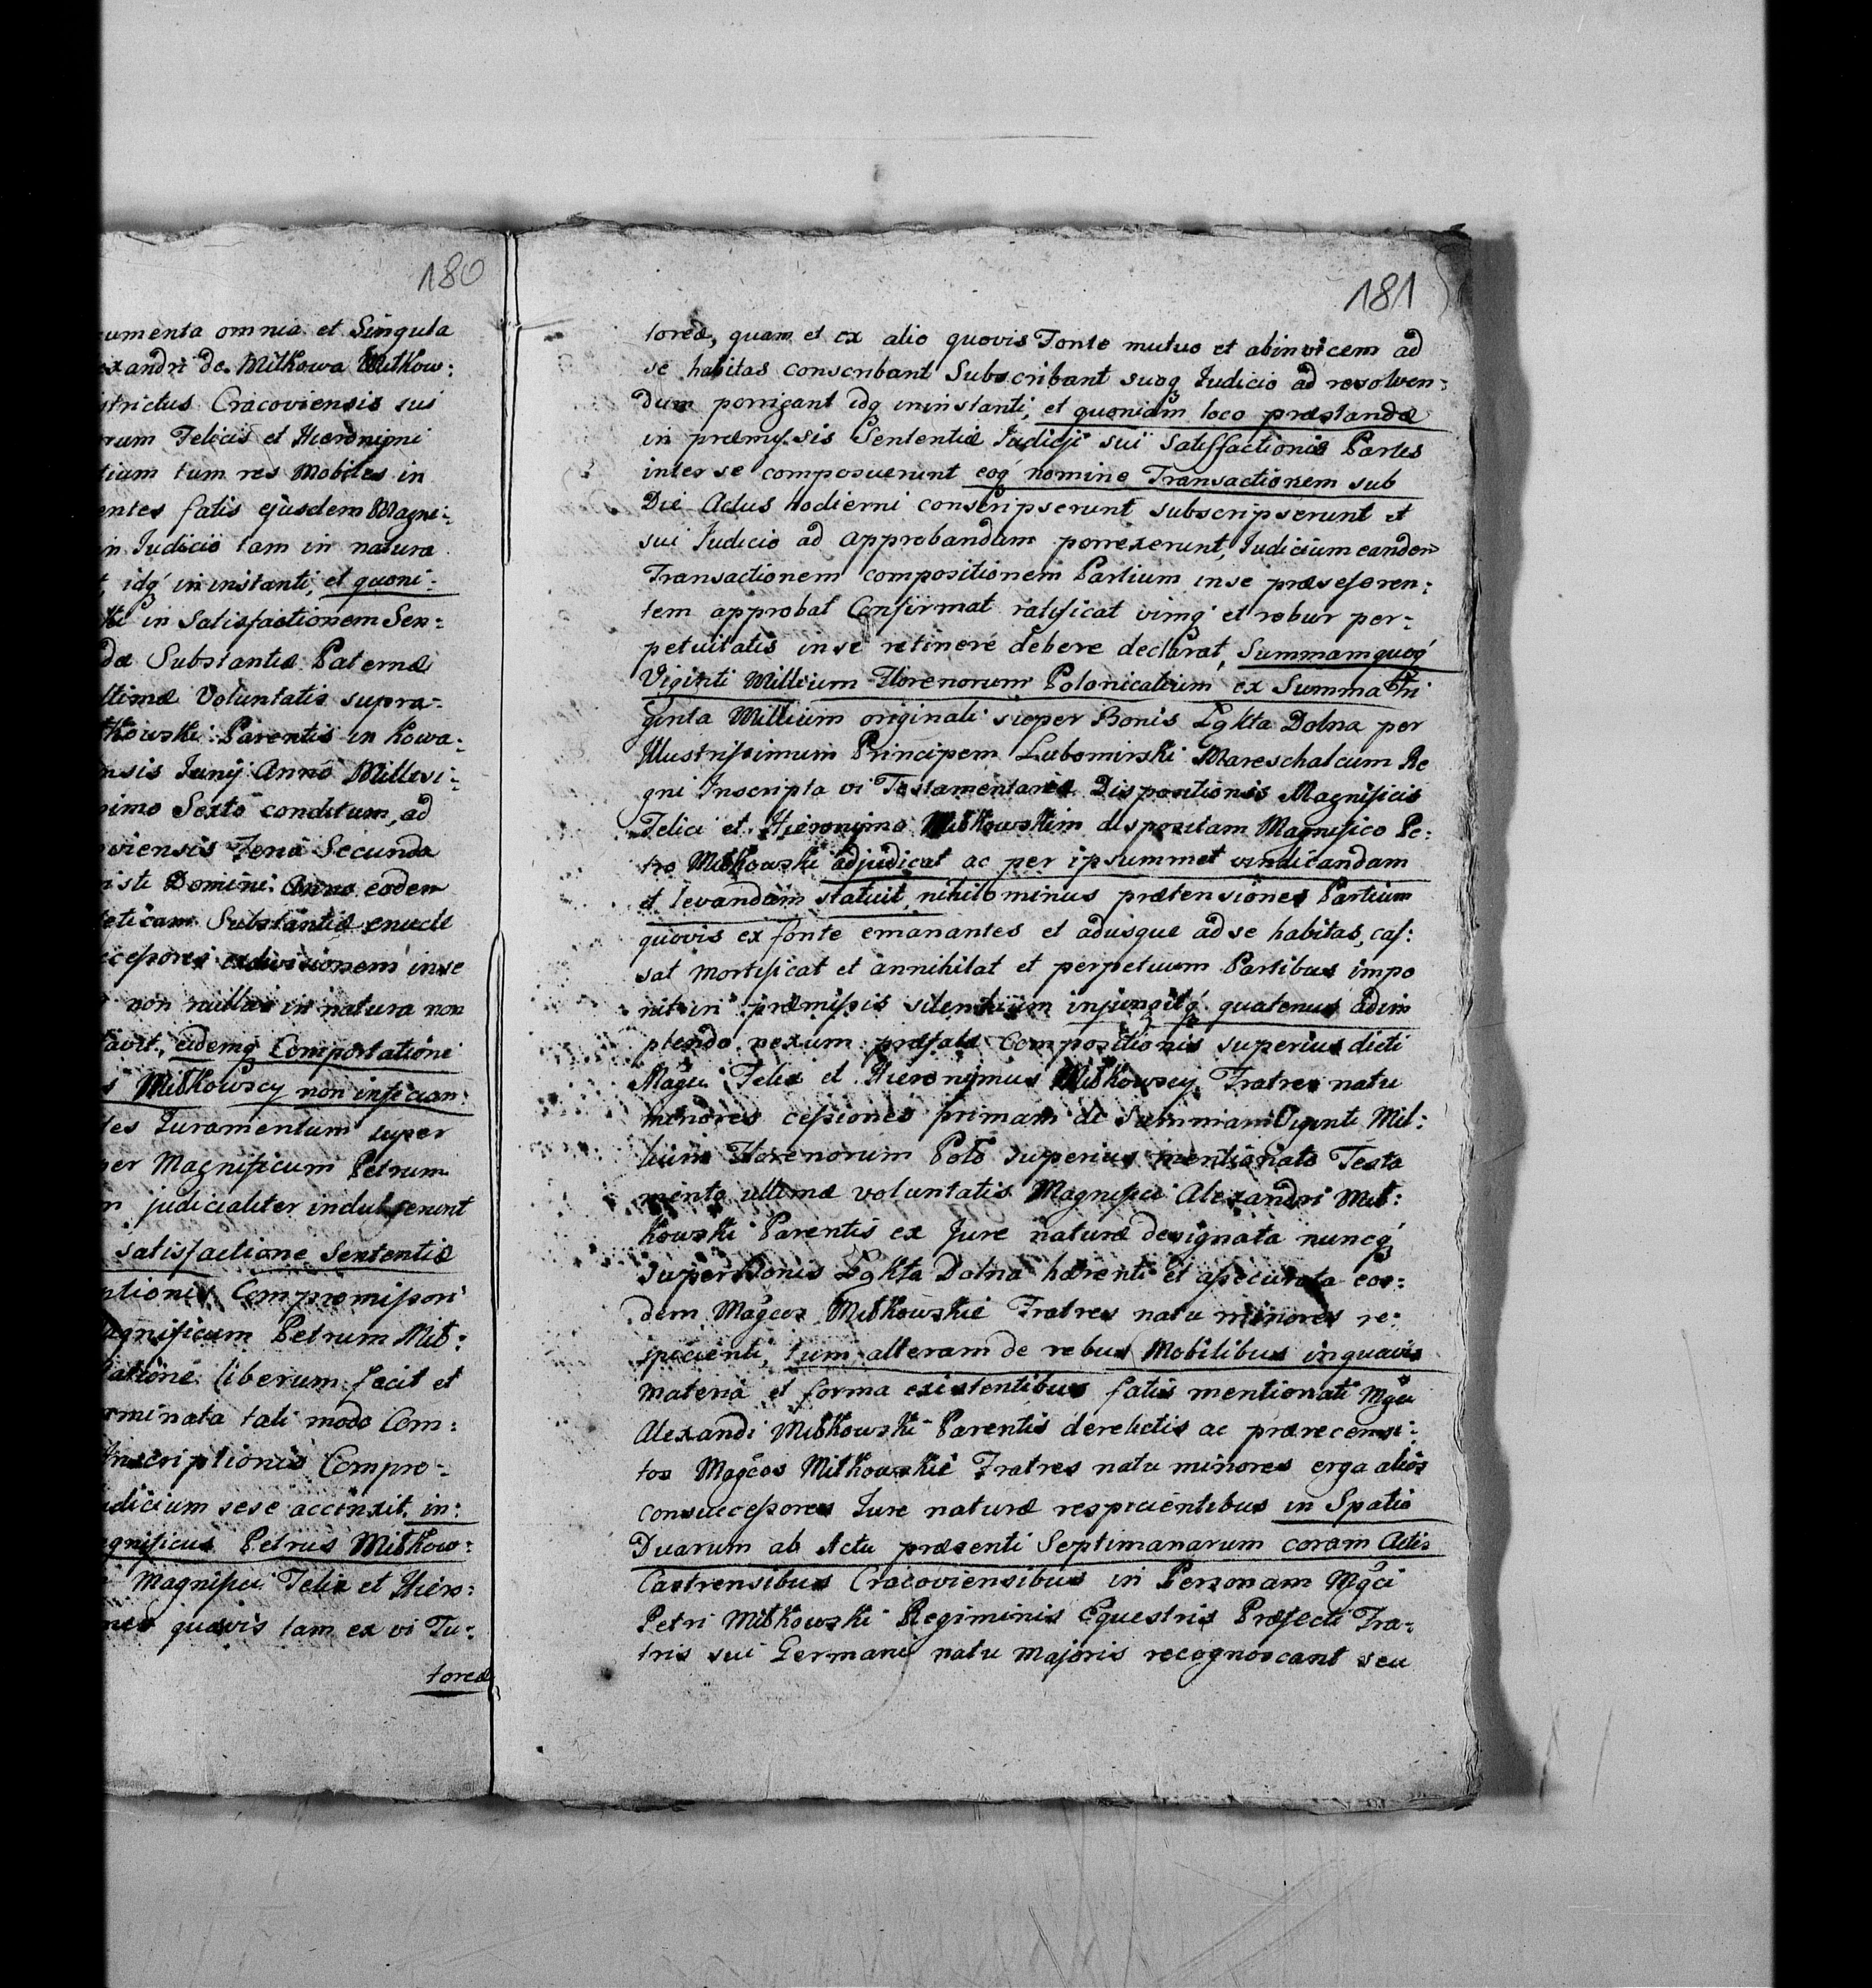 180
umenta omnia et Singula
exandri de Mitkowa Mitkow:
strictus Cracoviensis sui
rum Felicis et Hieronymi
tiam tum res Mobiles in
entes fatis ejusdem Magni:
in Judicio tam in natura
, idq́ in instanti, et quoni:
ki in Satisfactionem Sen:
dæ Substantiæ Paternæ
ltimæ Voluntatis supra:
tkowski Parentis in Kowa:
nsis Junij Anno Millesi:
simo Sexto conditum, ad
oviensis Feriâ Secundâ
risti Domini Anno eodem
eticam Substantiæ enucle
ccessores exdivisionem in se
non nullas in natura non
tavit, eidemq́ Comportationi
s Mitkowscy non infician:
tes Juramentum super
per Magnificum Petrum
n judicialiter indulserunt
satisfactione Sententiæ
ptionis Compromissori
agnificum Petrum Mit:
tatione liberum facit et
rminata tali modo Com:
Inscriptionis Compro:
udicium sese accinxit, in:
agnificus Petrus Mitkow:
i Magnifici Felix et Hiero:
nes quavis tam ex vi Tu:
toreæ
181
toreæ, quam et ex alio quovis Fonte mutuo et abinvicem ad
se habitas conscribant Subscribant suoq́ Judicio ad resolven:
dum porrigant idq́ in instanti, et quoniam loco præstandæ
in præmissis Sententiæ Judicij sui Satisfactionis Partes
inter se composuerunt eoq́ nomine Transactionem sub
Die Actus hodierni conscripserunt subscripserunt et
sui Judicio ad approbandam porrexerunt, Judicium eandem
Transactionem compositionem Partium in se præseferen:
tem approbat Confirmat ratificat vimq́ et robur per:
petuitatis in se retinere debere declarat, Summamquoq́
Viginti Millium Florenorum Polonicalium ex Summa Tri
ginta Millium originali super Bonis Łękta Dolna per
Illustrissimum Principem Lubomirski Mareschalcum Re
gni Inscripta vi Testamentariæ Dispositionis Magnificis
Felici et Hieronymo Mitkowskim dispositam Magnifico Pe:
tro Mitkowski adjudicat ac per ipsummet vindicandam
et levandam statuit, nihilominus prætensiones Partium
quovis ex fonte emanantes et adusque ad se habitas, cas:
sat mortificat et annihilat et perpetuum Partibus impo
nit in præmissis silentium injungitq́ quatenus adim
plendo nexum præfatæ Compositionis superius dicti
Magci Felix et Hieronymus Mitkowscy Fratres natu
minores cessiones primam de Summam Viginti Mil:
lium Florenorum Pol superius mentionato Testa
mento ultimæ voluntatis Magnifici Alexandri Mit:
kowski Parentis ex Jure naturæ designata nuncq́
super Bonis Łękta Dolna hærenti et assecurata eos:
dem Magcos Mitkowskie Fratres natu minores re:
spicienti, tum alteram de rebus Mobilibus in quavis
materia et forma existentibus fatis mentionati Mgci
Alexandi Mitkowski Parentis derelictis ac prærecensi:
tos Magcos Mitkowskie Fratres natu minores erga alios
consuccessores Jure naturæ respicientibus in Spatio
Duarum ab Actu præsenti Septimanarum coram Actis
Castrensibus Cracoviensibus in Personam Mgci
Petri Mitkowski Regiminis Equestris Præfecti Fra:
tris sui Germani natu majoris recognoscant seu